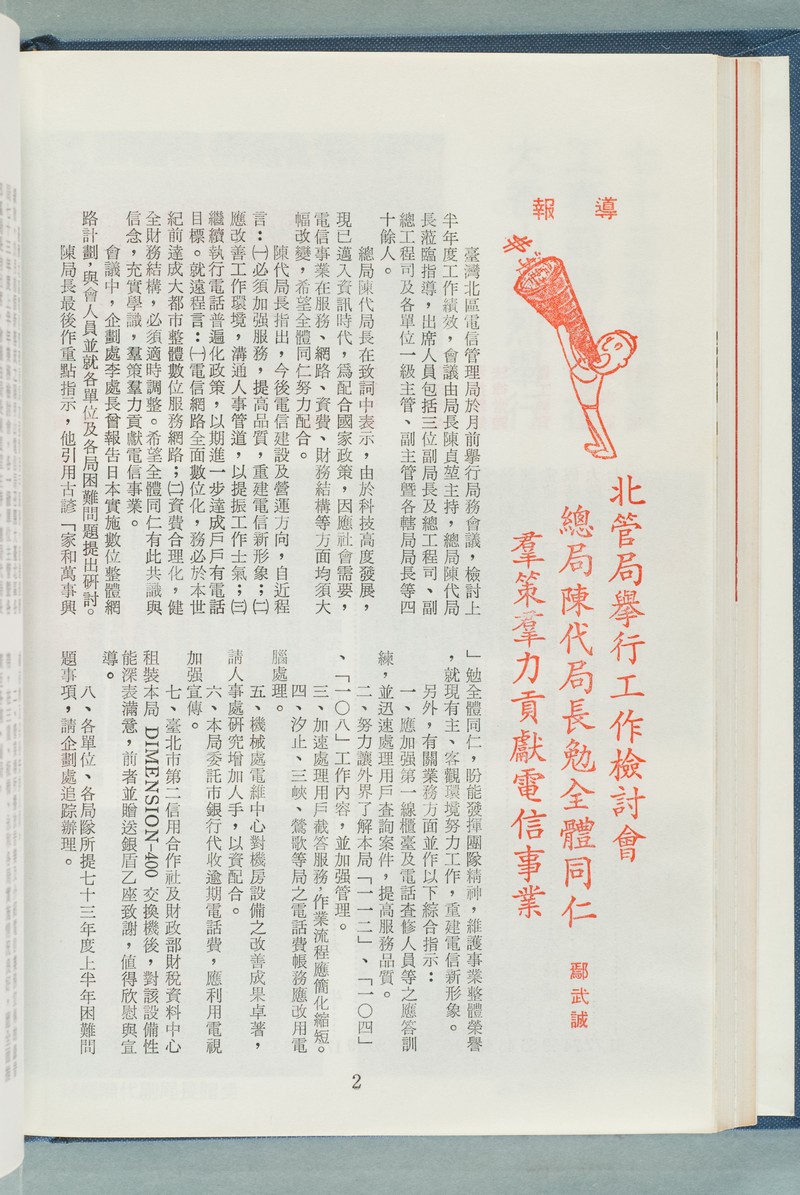 導報
北管局舉行工作檢討會
總局陳代局長勉全體同仁
羣策羣力貢獻電信事業
鄢武誠
臺灣北區電信管理局於月前舉行局務會議，檢討上
半年度工作績效，會議由局長陳貞堃主持，總局陳代局
長蒞臨指導，出席人員包括三位副局長及總工程司、副
總工程司及各單位一級主管、副主管暨各轄局局長等四
十餘人。
總局陳代局長在致詞中表示，由於科技高度發展，
現已邁入資訊時代，爲配合國家政策，因應社會需要，
電信事業在服務、網路、資費、財務結構等方面均須大
幅改變，希望全體同仁努力配合。
陳代局長指出，今後電信建設及營運方向，自近程
言：㈠必須加强服務，提高品質，重建電信新形象；㈡
應改善工作環境，溝通人事管道，以提振工作士氣；㈢
繼續執行電話普遍化政策，以期進一步達成戶戶有電話
目標。就遠程言：㈠電信網路全面數位化，務必於本世
紀前達成大都市整體數位服務網路；㈡資費合理化，健
全財務結構，必須適時調整。希望全體同仁有此共識與
信念，充實學識，羣策羣力貢獻電信事業。
會議中，企劃處李處長曾報告日本實施數位整體網
路計劃，與會人員並就各單位及各局困難問題提出研討。
陳局長最後作重點指示，他引用古諺「家和萬事興
」勉全體同仁，盼能發揮團隊精神，維護事業整體榮譽
，就現有主、客觀環境努力工作，重建電信新形象。
另外，有關業務方面並作以下綜合指示：
一、應加强第一線櫃臺及電話查修人員等之應答訓
練，並迅速處理用戶查詢案件，提高服務品質。
二、努力讓外界了解本局「一一二」、「一〇四」
、「一〇八」工作內容，並加强管理。
三、加速處理用戶截答服務，作業流程應簡化縮短。
四、汐止、三峽、鶯歌等局之電話費帳務應改用電
腦處理。
五、機械處電維中心對機房設備之改善成果卓著，
請人事處研究增加人手，以資配合。
六、本局委託市銀行代收逾期電話費，應利用電視
加强宣傳。
七、臺北市第二信用合作社及財政部財稅資料中心
租裝本局 DIMENSION-400 交換機後，對該設備性
能深表滿意，前者並贈送銀盾乙座致謝，値得欣慰與宣
導。
八、各單位、各局隊所提七十三年度上半年困難問
題事項，請企劃處追踪辦理。
2